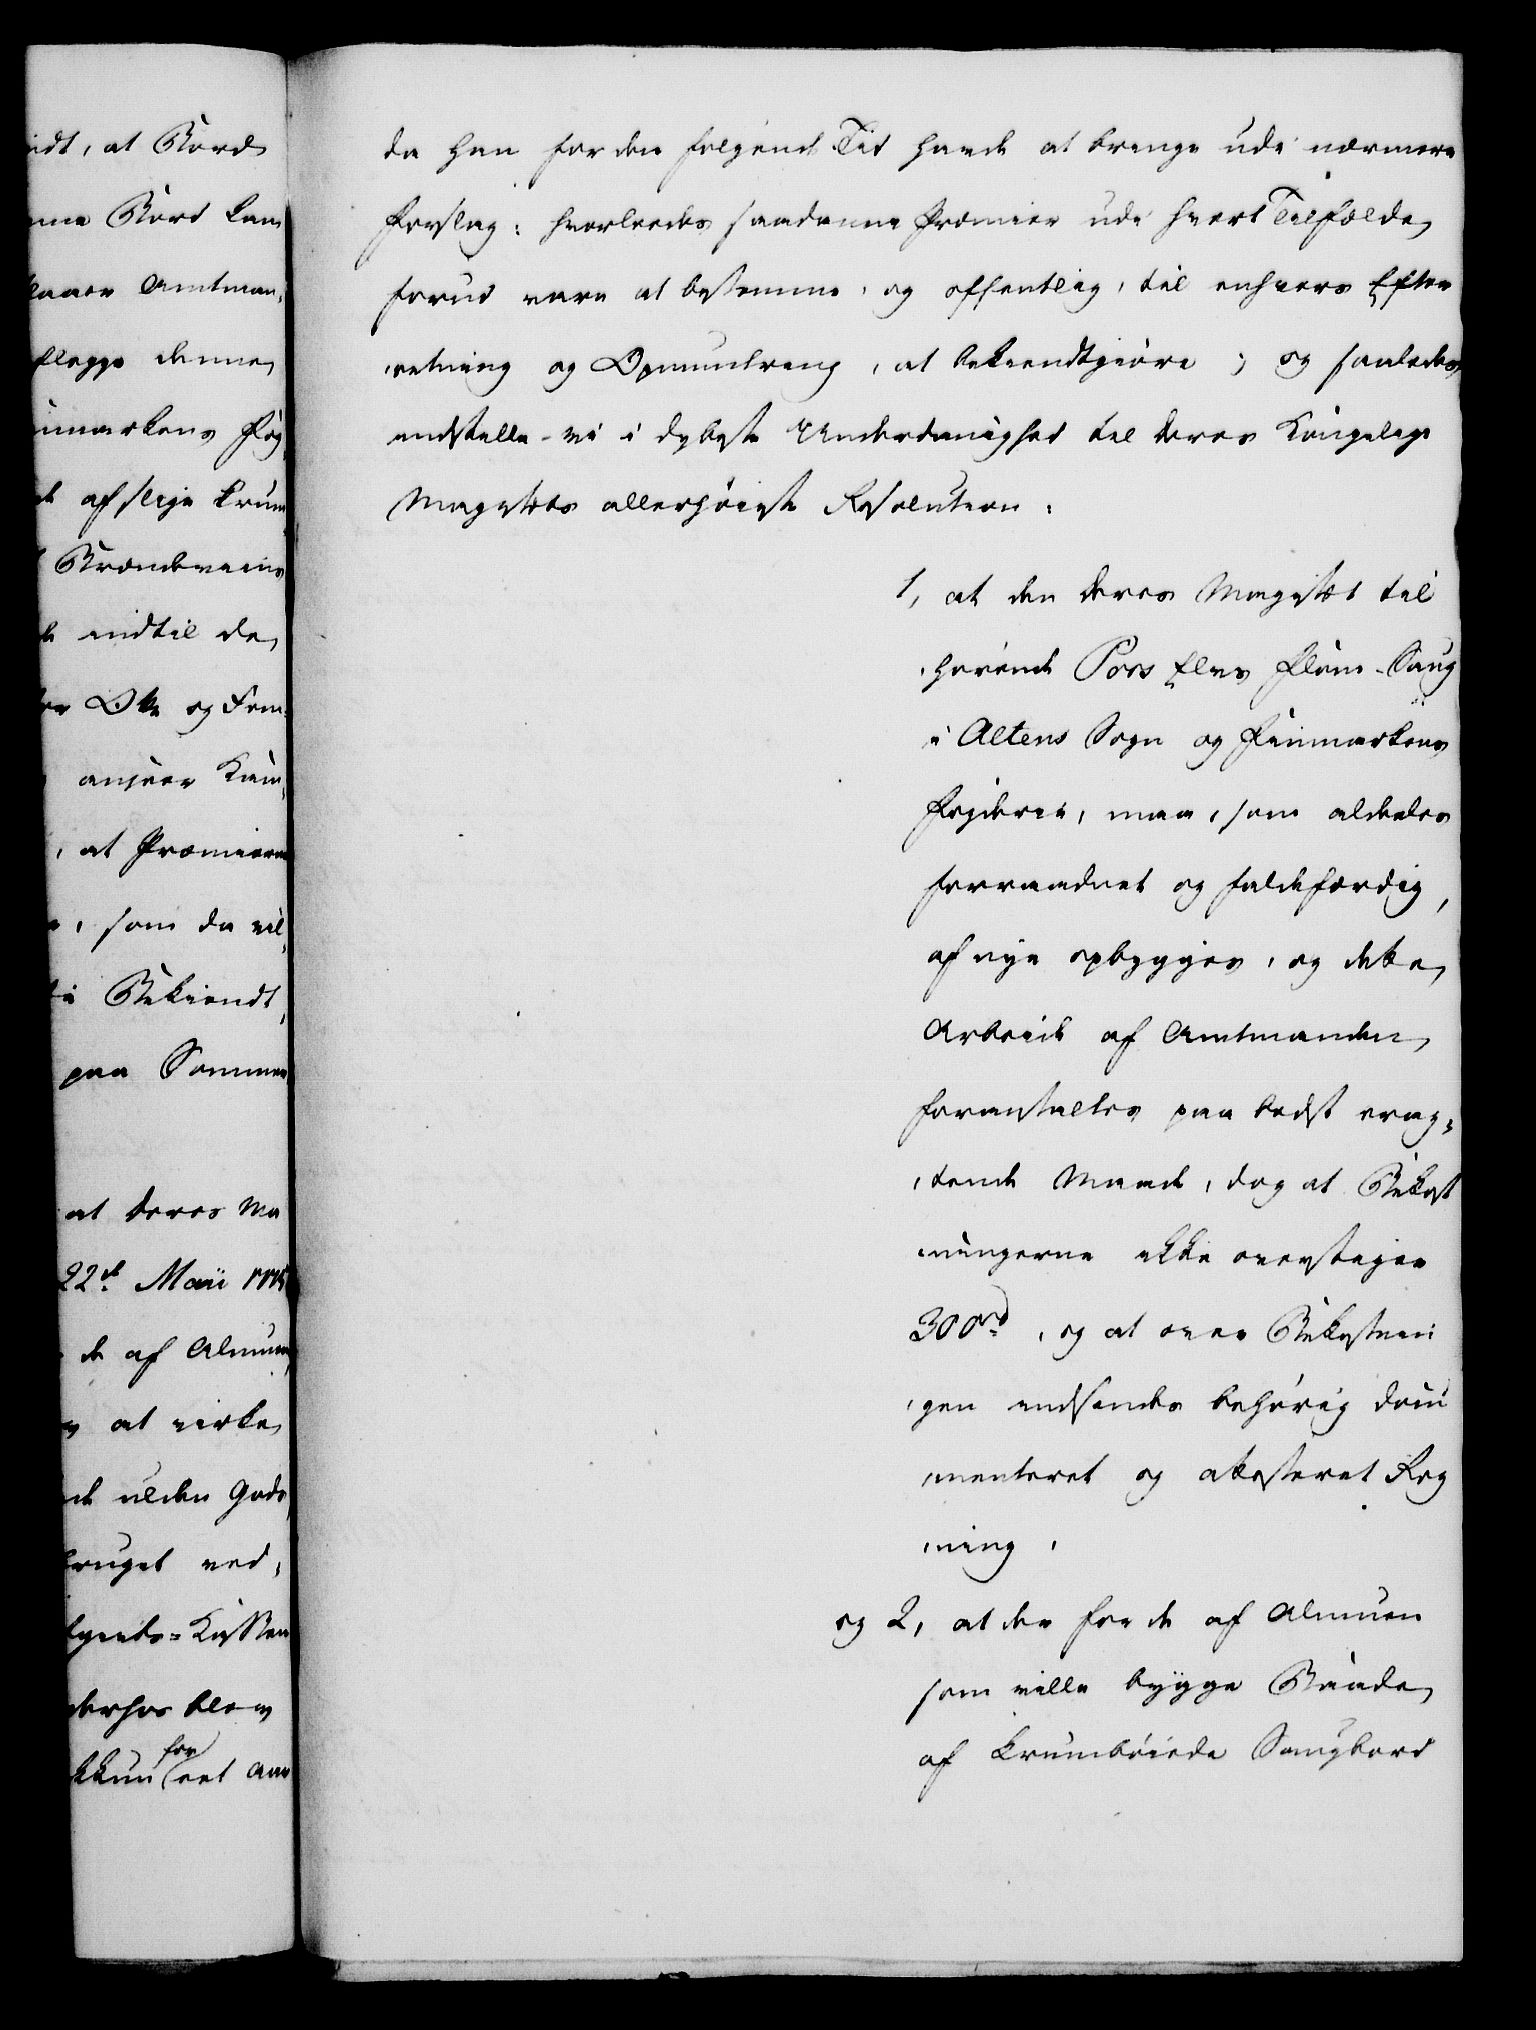 idt, at Bord
Bord kan
Amtman,
flegge denne
nmarkens Fög
af slige krum
Brændeviins
indtil de
Otte og Fem
anseer Kam,
, at Præmierne
, som da vil,
Bekiendt,
paa Sommer
at Deres Ma
22d. Maii
de af Almuen
at virke
ulden Gods
bruget ved,
derhos blev
for
eet Aar
da han for den følgende Tid havde at bringe udi nærmere
Forslag: hvorledes saadanne Præmier udi hvert Tilfælde
forud være at bestemme, og offentlig, til enhvers Efter
,retning og Opmuntring, at bekiendtgiöre; og saaledes
indstille vi i dybeste Underdanighed til Deres Kongelige
Majestets allerhöieste Resolution:
1, at den Deres Majestet til
,hörende Pors Elvs Flöm-Saug
i Altens Sogn og Finmarkens
Fogderie, maa, som aldeeles
forraadnet og faldefærdig,
af nye opbygges, og dette
Arbeide af Amtmanden
foranstaltes paa bedst erag,
,tende Maade, dog at Bekost
,ningerne ikke overstiger
300rd, og at over Bekostnin
,gen indsendes behörig docu
,menteret og attesteret Reg
,ning.
og 2, at der for de af Almuen
som ville bygge Baade
af krumböiede Saugbord